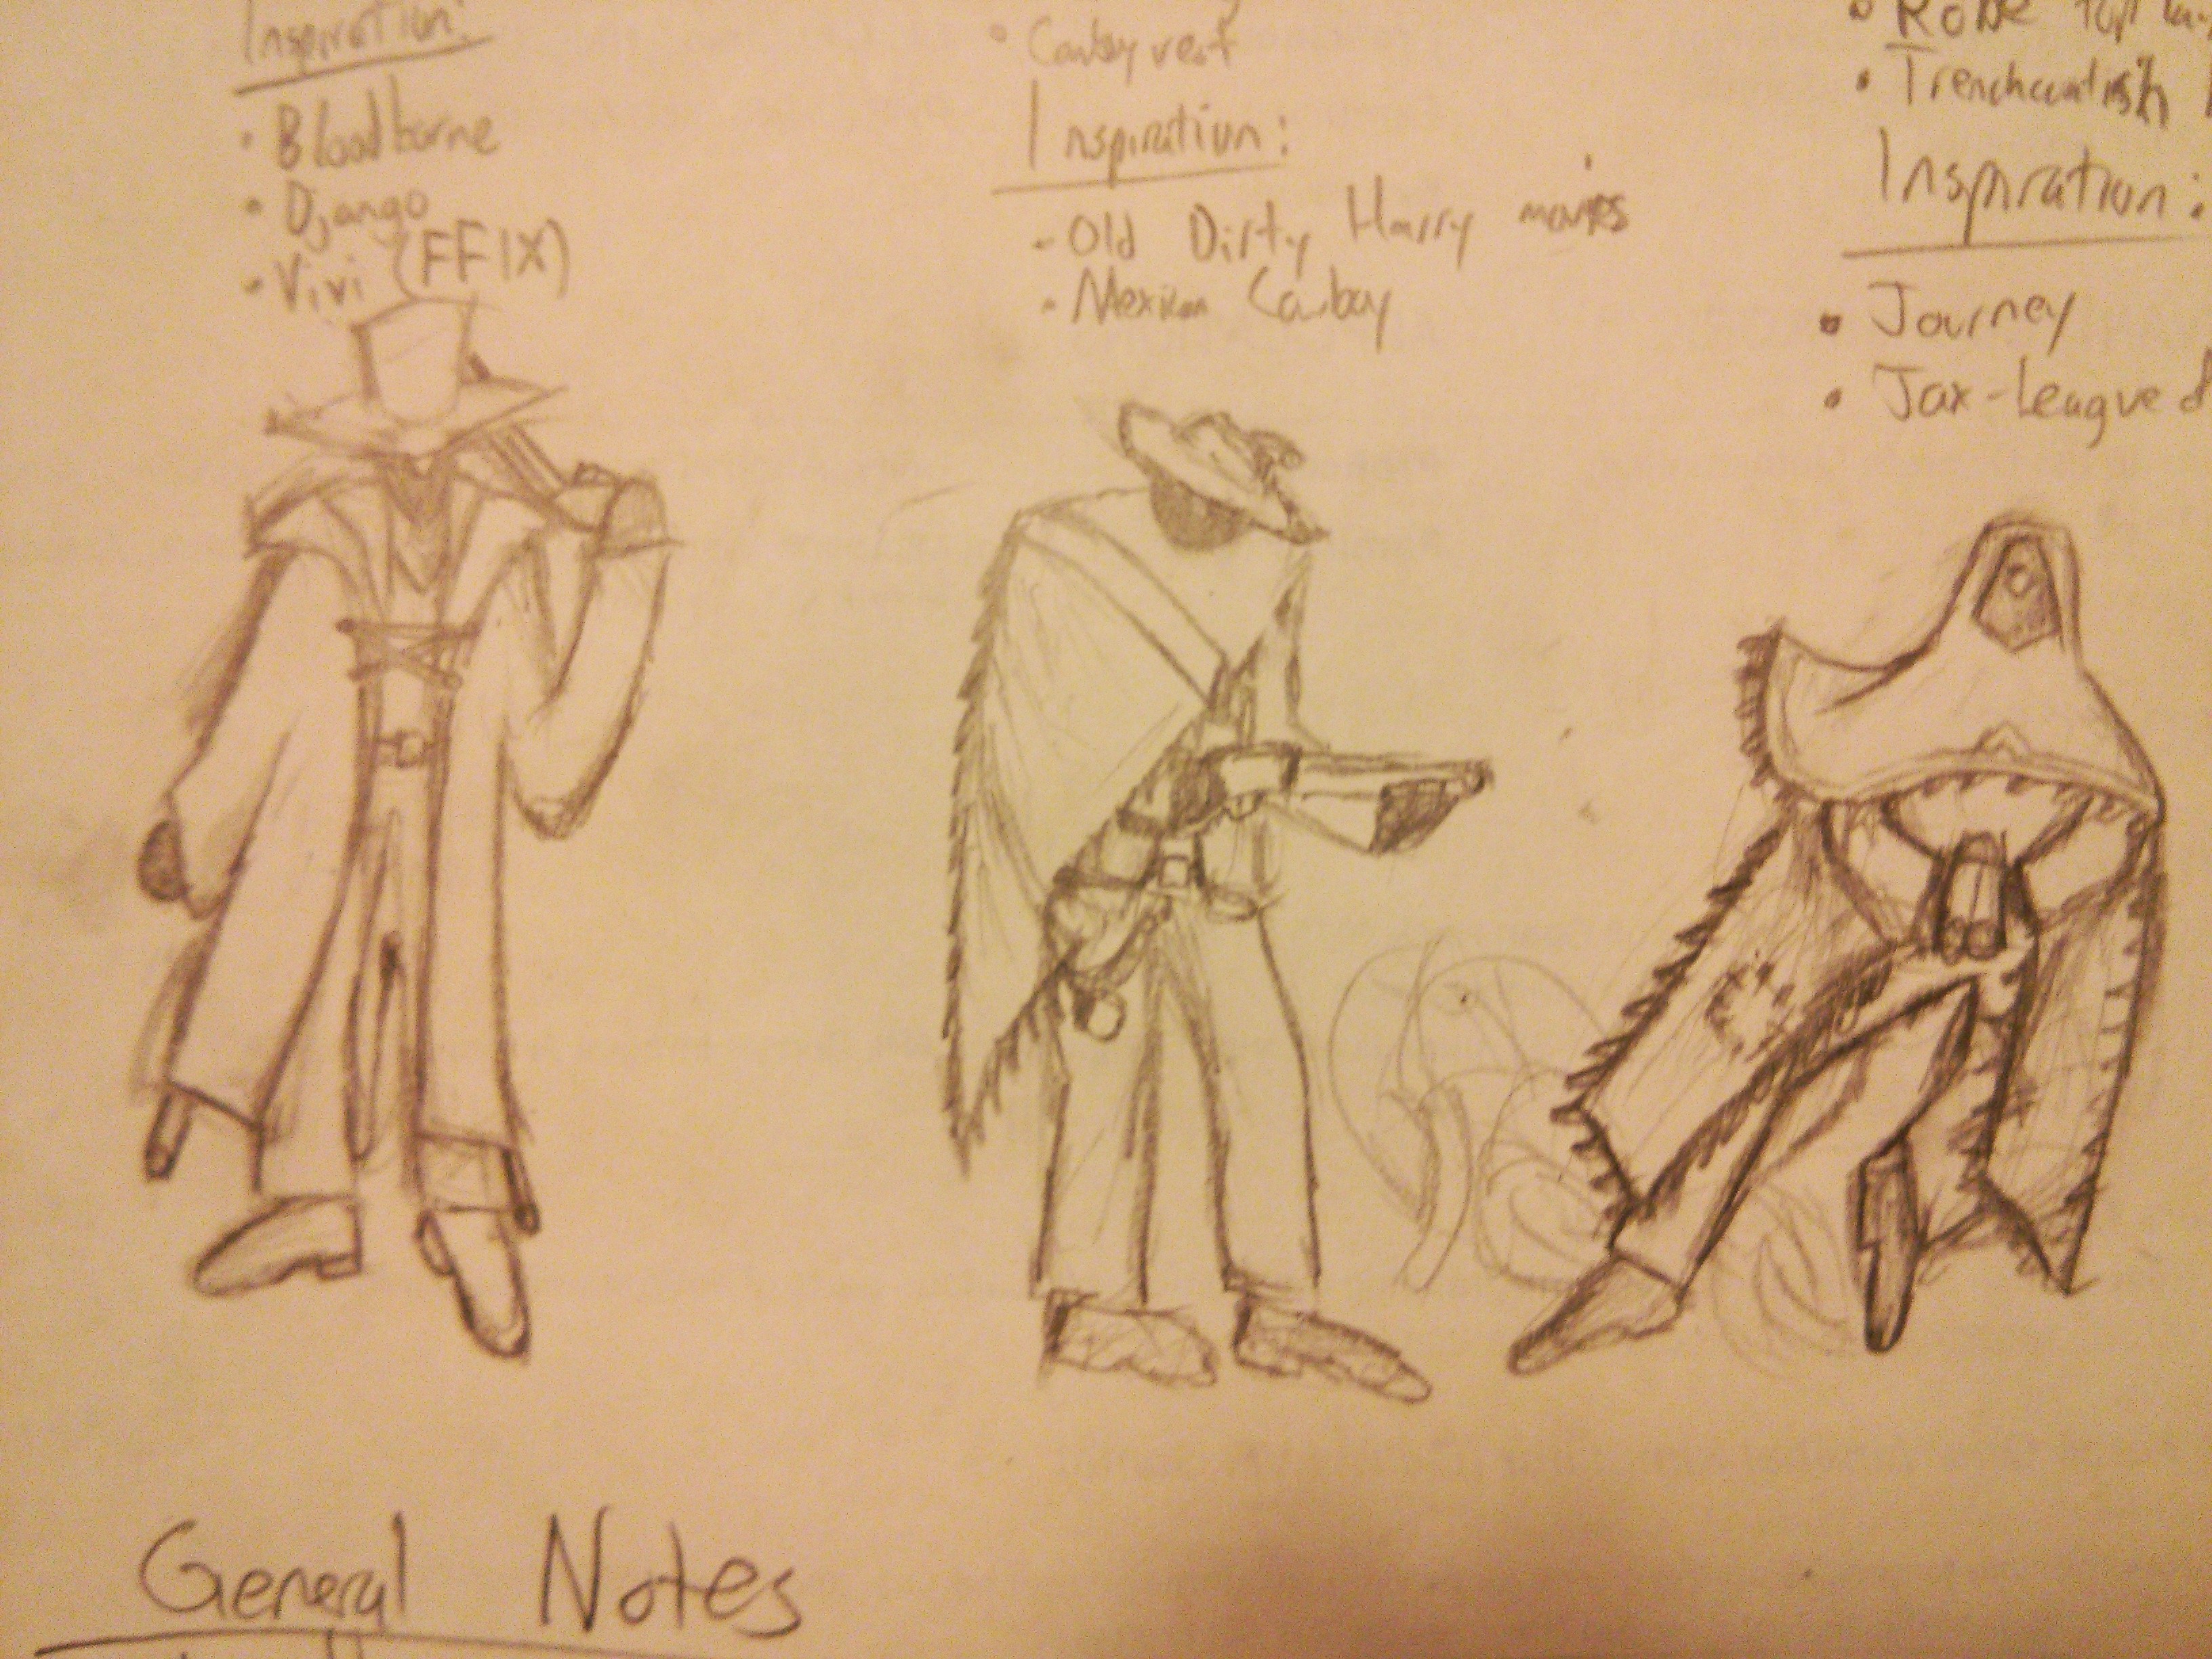 Inspiration:
• Bloodborne
• Django
• Vivi (FFIX)
• Cowboy vest
Inspiration:
• Old Dirty Harry movies
• Mexican Cowboy
• Robe
• Trenchcoatish
Inspiration:
• Journey
• Jax - League of
General Notes